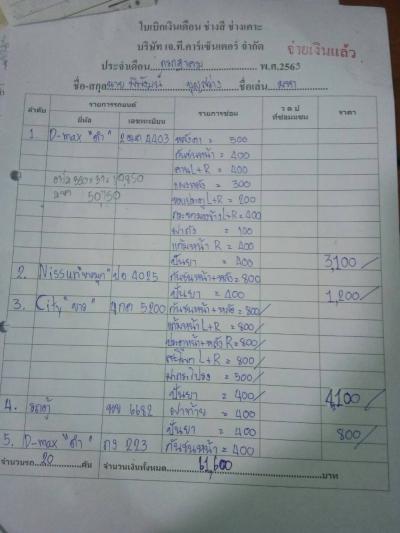 ใบเบิกเงินเดือน ช่างสี ช่างเคาะ
บริษัท เจ.ที.คาร์เซ็นเตอร์ จำกัด
จ่ายเงินแล้ว
ประจำเดือน กรกฎาคม พ.ศ.2563
ชื่อ-สกุล นาย ชื่อเล่น
ลำดับ รายการรถยนต์ รายการซ่อม ว ด ป ที่ซ่อมมชม ราคา
ยี่ห้อ เลขทะเบียน
1. D-max "ดำ" 4403 หลังคา = 500
กันชนหน้า = 400
คาน L+R = 400
= 300
50,750 L+R = 200
L+R = 400
ฝาถัง = 100
แก้มหน้า R = 400
ปั่นยา = 400 3,100
2. Nissan 4025 กันชนหน้า+หลัง = 800
ปั่นยา = 400 1,200
3. City "ขาว" 5200 กันชนหน้า+หลัง = 800
แก้มหน้า L+R = 800
ประตูหน้า+หลัง R = 800
L+R = 800
ฝากระโปรง = 500
ปั่นยา = 400 4,100
4. รถตู้ 6682 ฝาท้าย = 400
ปั่นยา = 400 800
5. D-max "ดำ" กร 223 กันชนหน้า = 400
จำนวนรถ 20 คัน จำนวนเงินทั้งหมด 61,600 บาท